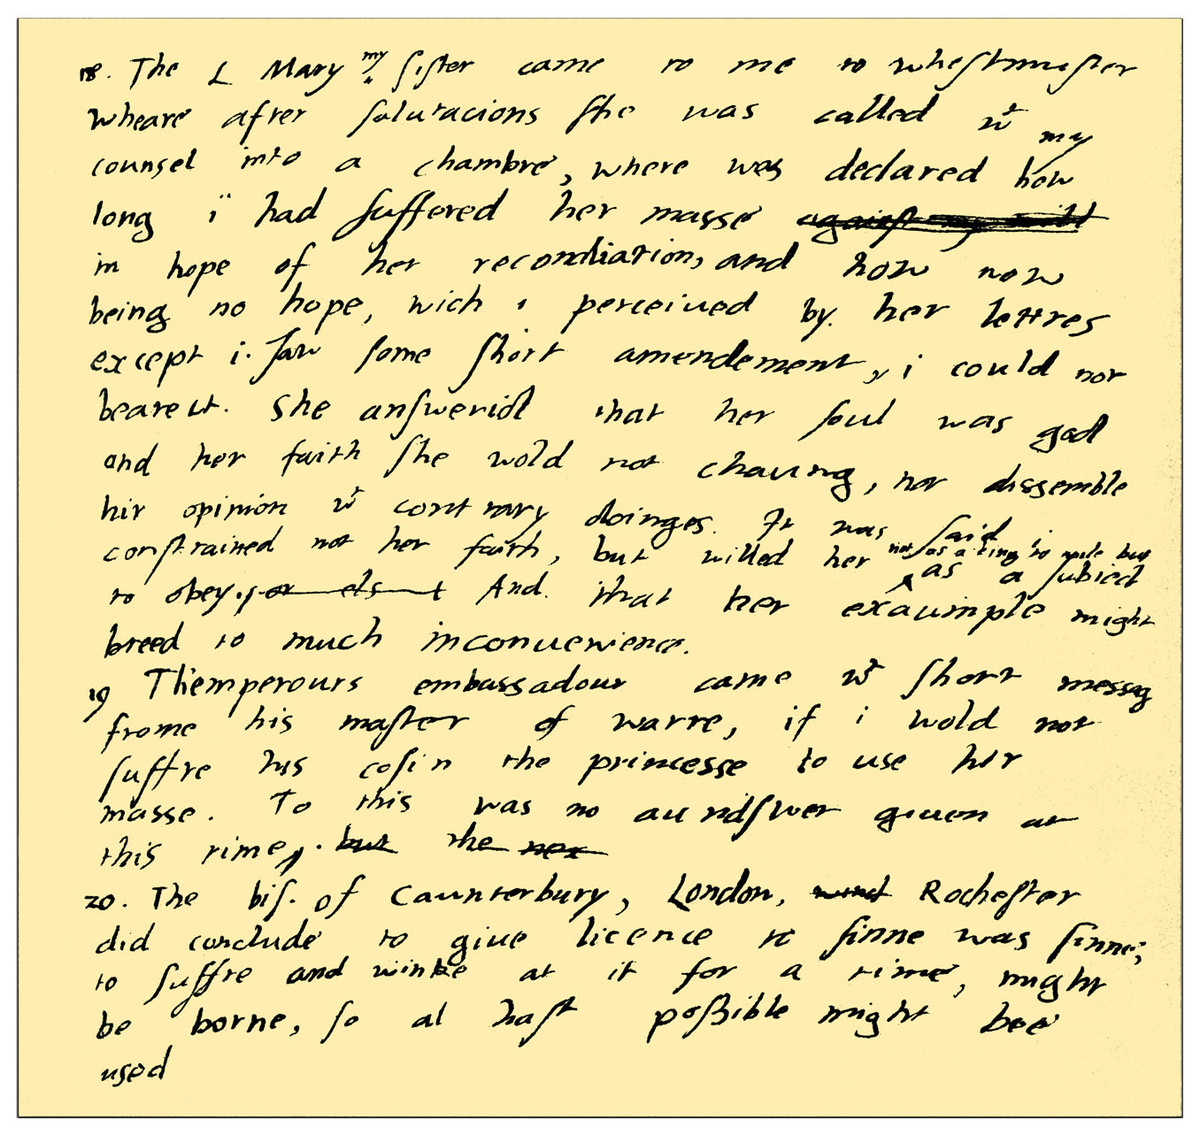 18. The L Mary my sister came to me to whestmuster
wheare after salutacions she was called wt my
counsel into a chambre, where was declared how
long i had suffered her masse against my will
in hope of her reconciliation, and how now
being no hope, wich i perceiued by her lettres
except i saw some short amendement, i could not
beare it. She answerid that her soul was god
and her faith she wold not chaung, nor dissemble
hir opinion wt contrary doinges. It was said i
constrained not her faith, but willed her not as a king to rule but as a subiect
to obey. or els And that her exaumple might
breed to much inconuenience.
19 Themperours embassadour came wt short messag
frome his master of warre, if i wold not
suffre his cosin the princesse to use hir
masse. To this was no aundswer geuen at
this time, but the nex
20. The bis. of Caunterbury, London, and Rochester
did conclude to giue licence to sinne was sinne;
to suffre and winke at it for a time, might
be borne, so al hast possible might bee
used